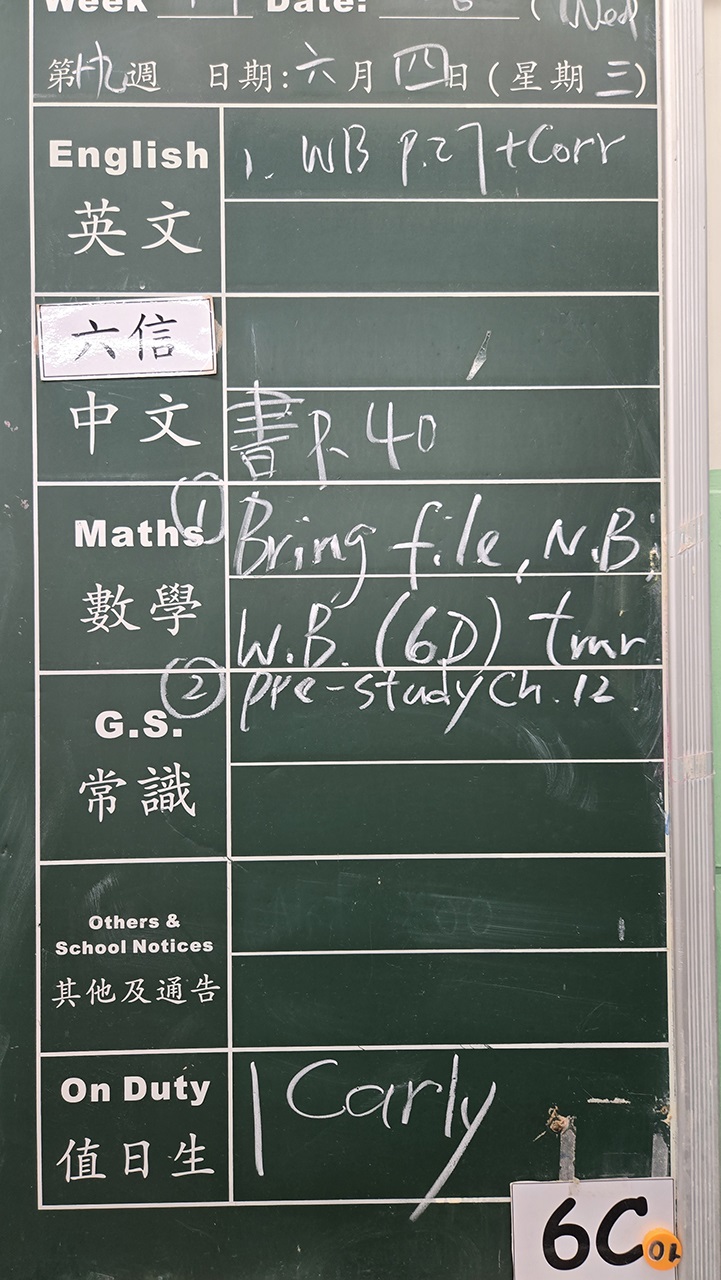 Week 19 Date: 6 (Wed
第十九週 日期:六月四日(星期三)
English 1. WB P.27 + Corr
英文
六信
中文 書P.40
Maths ① Bring file, N.B.,
數學 W.B. (6D) tmr.
② pre-study Ch. 12.
G.S.
常識
Others &
School Notices
其他及通告
On Duty 1 Carly
值日生
6C